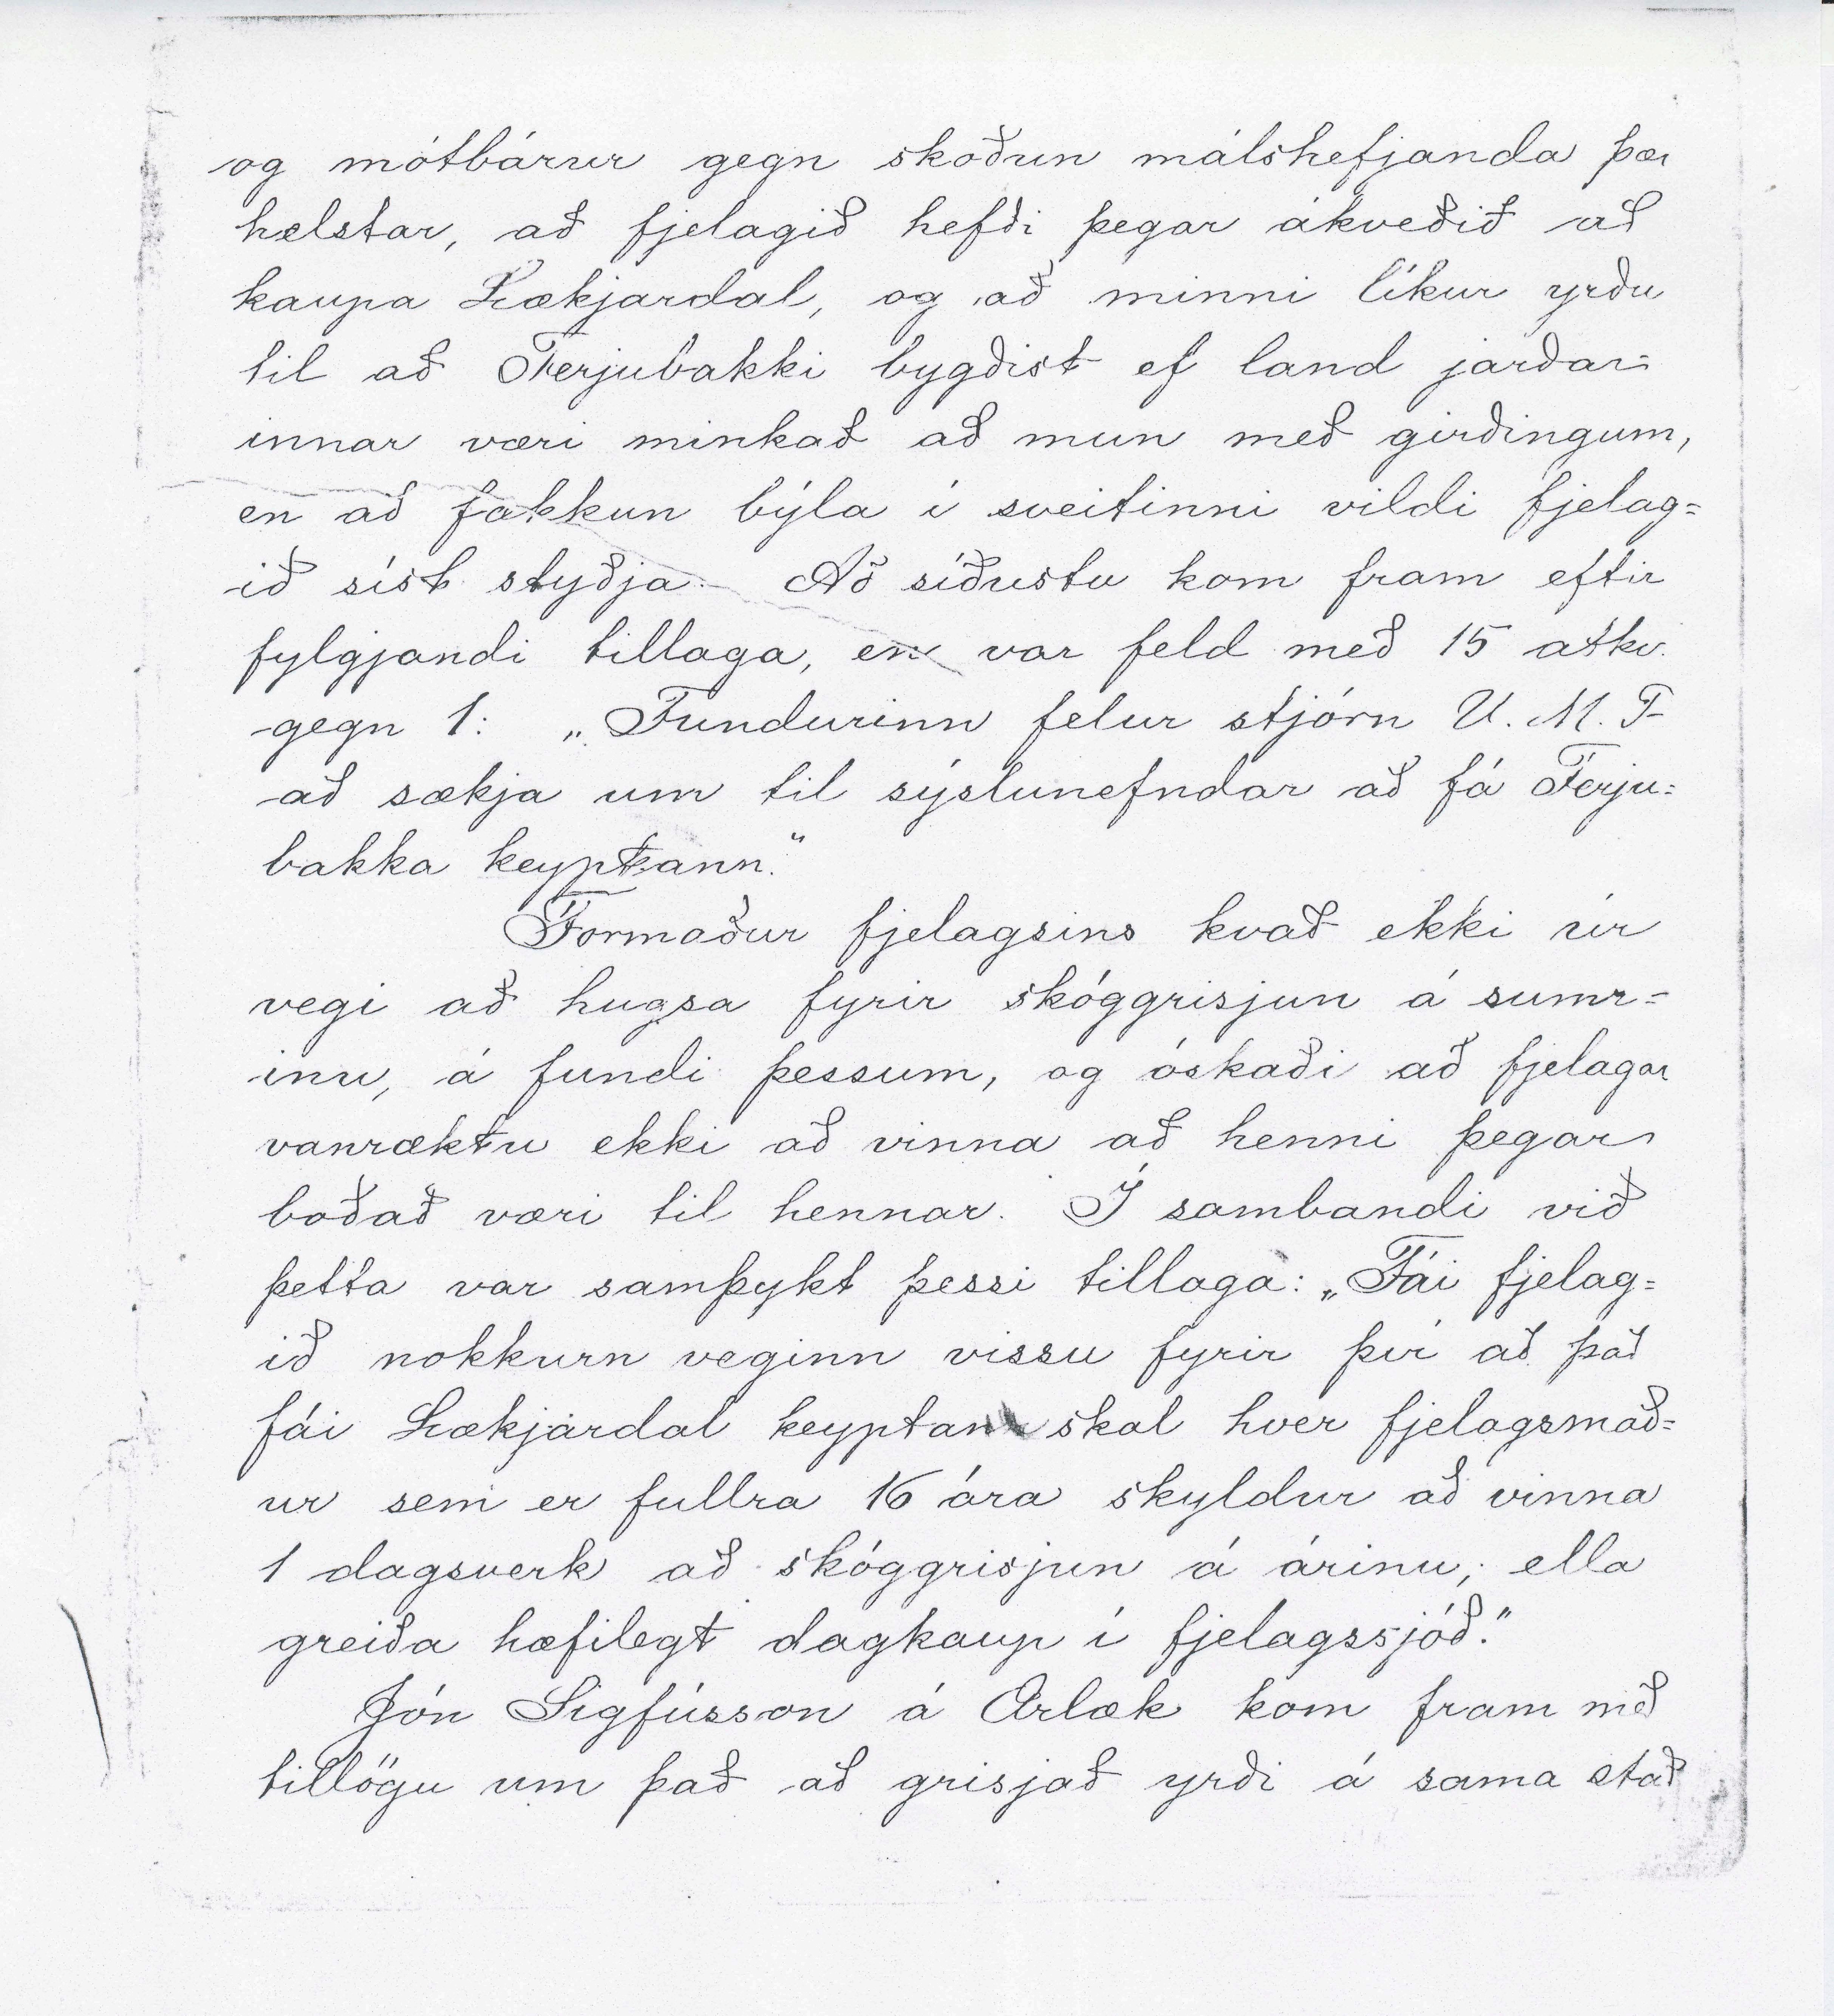 og mótbárur gegn skoðun málshefjanda þær
helstar, að fjelagið hefði þegar ákveðið að
kaupa Lækjardal, og að minni líkur yrðu
til að Ferjubakki bygðist ef land jarðar=
innar væri minkað að mun með girðingum,
en að fækkun býla í sveitinni vildi fjelag=
ið síst styðja. Að síðustu kom fram eftir
fylgjandi tillaga, en var feld með 15 atkv.
gegn 1: „Fundurinn felur stjórn U. M. F.
að sækja um til sýslunefndar að fá Ferju=
bakka keyptann."
Formaður fjelagsins kvað ekki úr
vegi að hugsa fyrir skóggrisjun á sumr=
inu, á fundi þessum, og óskaði að fjelagar
vanræktu ekki að vinna að henni þegar
boðað væri til hennar. Í sambandi við
þetta var samþykt þessi tillaga: „Fái fjelag=
ið nokkurn veginn vissu fyrir því að það
fái Lækjardal keyptan skal hver fjelagsmað=
ur sem er fullra 16 ára skyldur að vinna
1 dagsverk að skóggrisjun á árinu; ella
greiða hæfilegt dagkaup í fjelagssjóð."
Jón Sigfússon á Ærlæk kom fram með
tillögu um það að grisjað yrði á sama stað